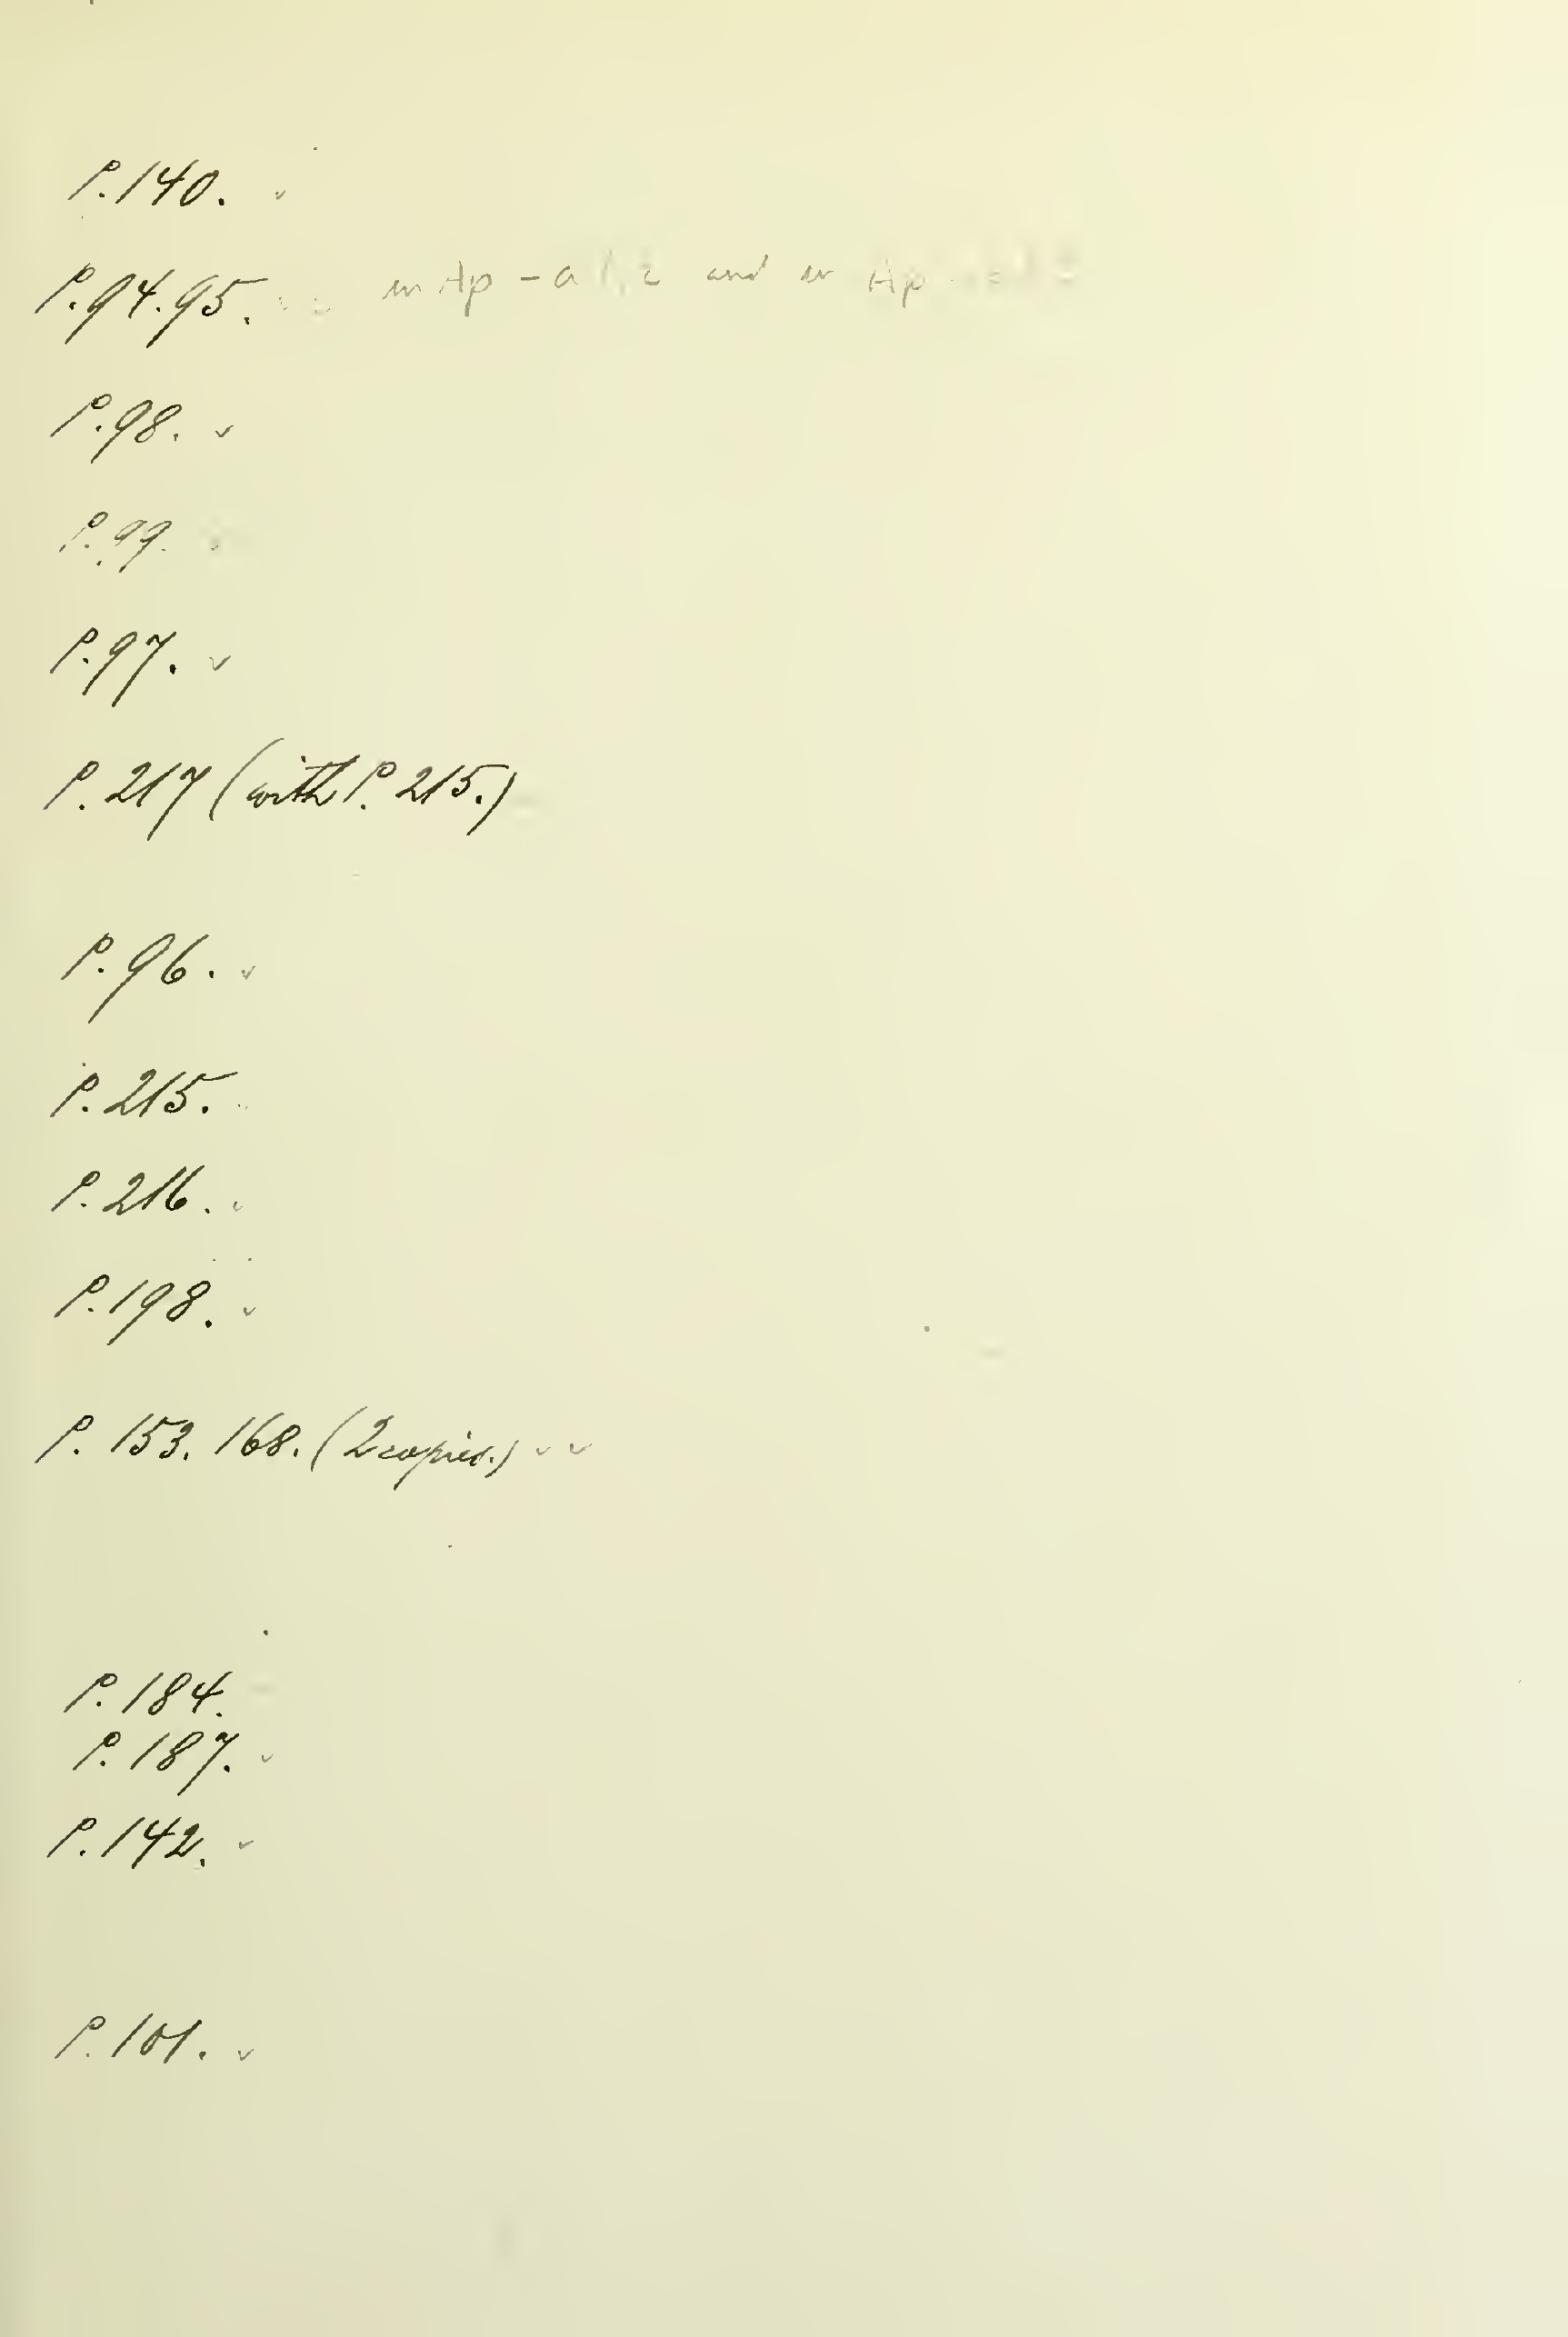 P. 140. ✓
P. 94. 95. in Ap - a and in Ap
P. 98. ✓
P. 99.
P. 97. ✓
P. 217 (with P. 215.)
P. 96. ✓
P. 215.
P. 216. ✓
P. 198. ✓
P. 153. 168. (2 copies.) ✓ ✓
P. 184.
P. 187. ✓
P. 142. ✓
P. 101. ✓